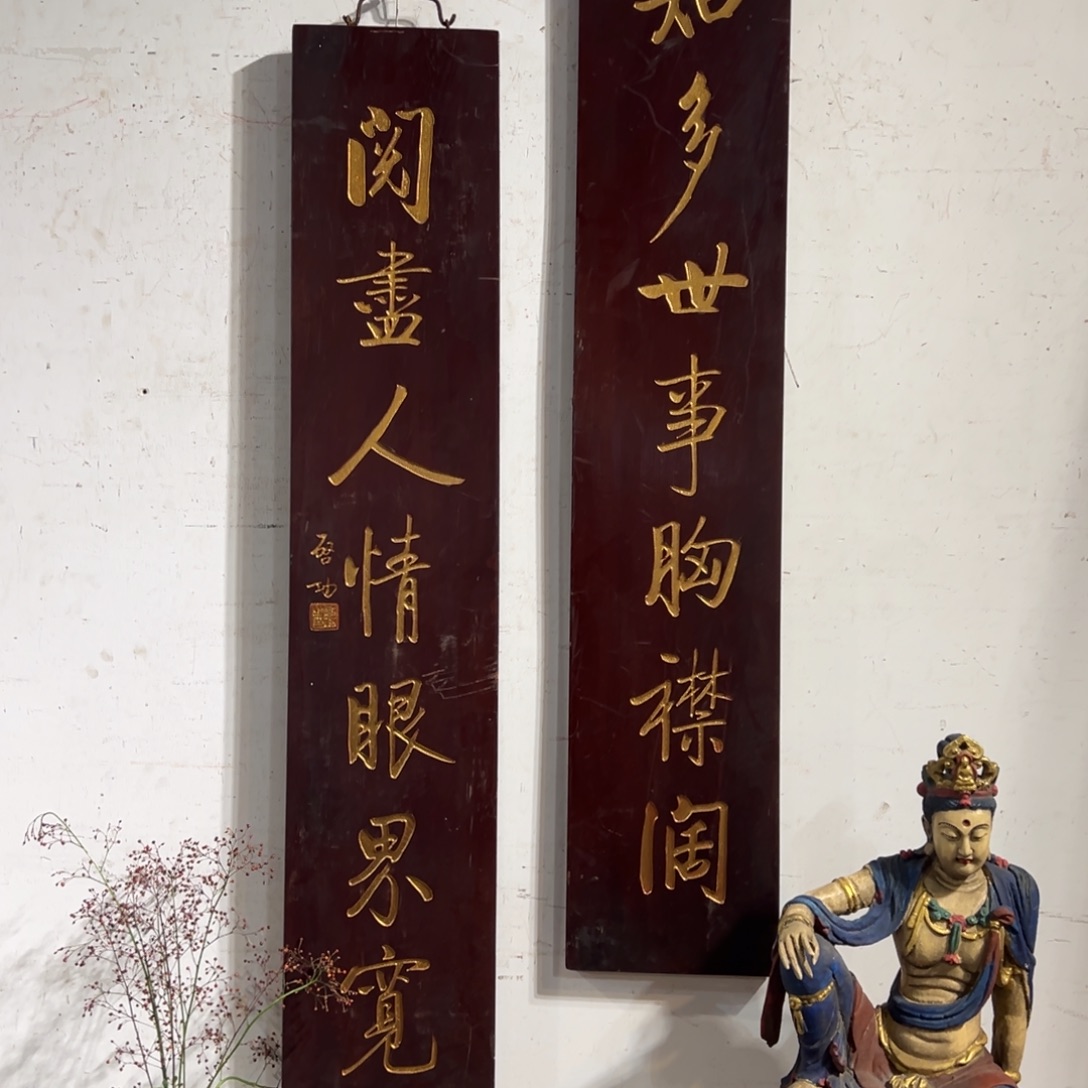 知多世事胸襟阔
阅尽人情眼界宽
启功